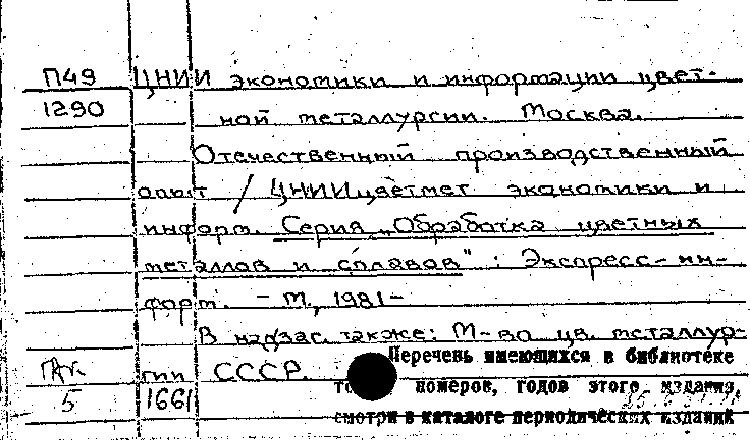 П49 ЦНИИ экономики и информации цвет-
1290 ной металлургии. Москва.
Отечественный производственный
опыт / ЦНИИцветмет экономики и
информ. Серия „Обработка цветных
металлов и сплавов" : Экспресс-ин-
форм. - М., 1981-
В надзаг. также: М-во цв. металлур-
гии СССР.
Перечень имеющихся в библиотеке
номеров, годов этого издания,
смотри в каталоге периодических изданий
5 1661